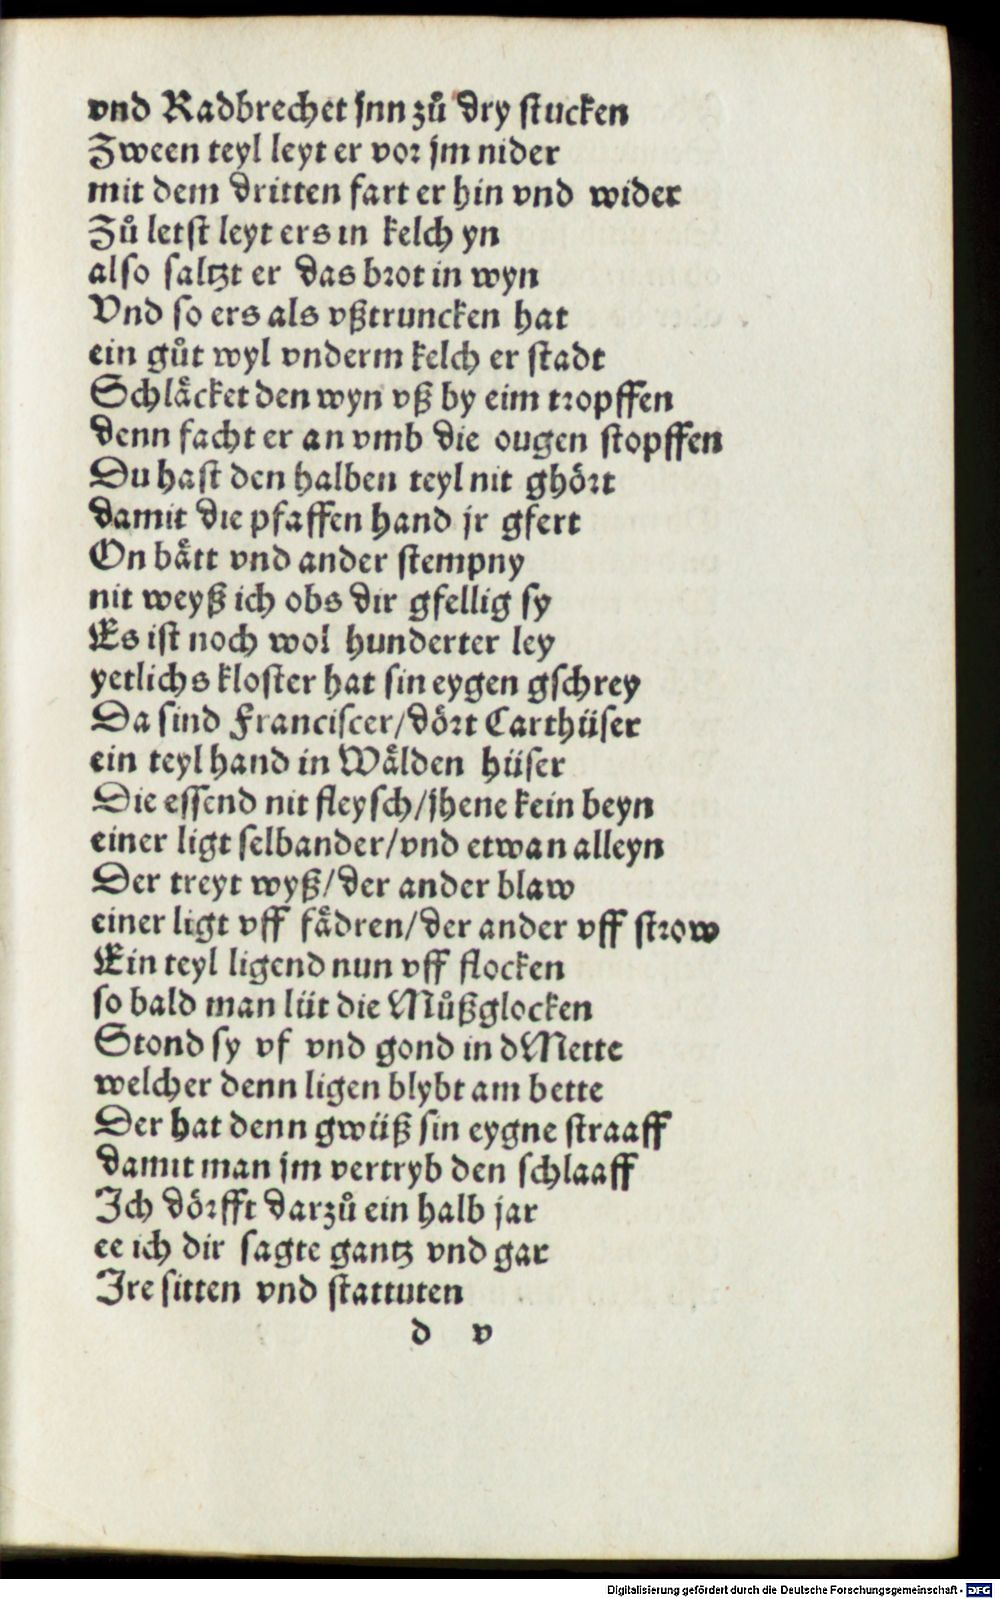 vnd Radbrechet jnn zů dry stucken
Zween teyl leyt er vor jm nider
mit dem dritten fart er hin vnd wider
Zů letst leyt ers in kelch yn
also saltzt er das brot in wyn
Vnd so ers als vßtruncken hat
ein gůt wyl vnderm kelch er stadt
Schlaͤcket den wyn vß by eim tropffen
denn facht er an vmb die ougen stopffen
Du hast den halben teyl nit ghoͤrt
damit die pfaffen hand jr gfert
On baͤtt vnd ander stempny
nit weyß ich obs dir gfellig sy
Es ist noch wol hunderter ley
yetlichs kloster hat sin eygen gschrey
Da sind Franciscer/doͤrt Carthüser
ein teyl hand in Waͤlden hüser
Die essend nit fleysch/jhene kein beyn
einer ligt selbander/vnd etwan alleyn
Der treyt wyß/der ander blaw
einer ligt vff faͤdren/der ander vff strow
Ein teyl ligend nun vff flocken
so bald man lüt die Můßglocken
Stond sy vf vnd gond in dMette
welcher denn ligen blybt am bette
Der hat denn gwüß sin eygne straaff
damit man jm vertryb den schlaaff
Ich doͤrfft darzů ein halb jar
ee ich dir sagte gantz vnd gar
Ire sitten vnd stattuten
d v
Digitalisierung gefördert durch die Deutsche Forschungsgemeinschaft - DFG